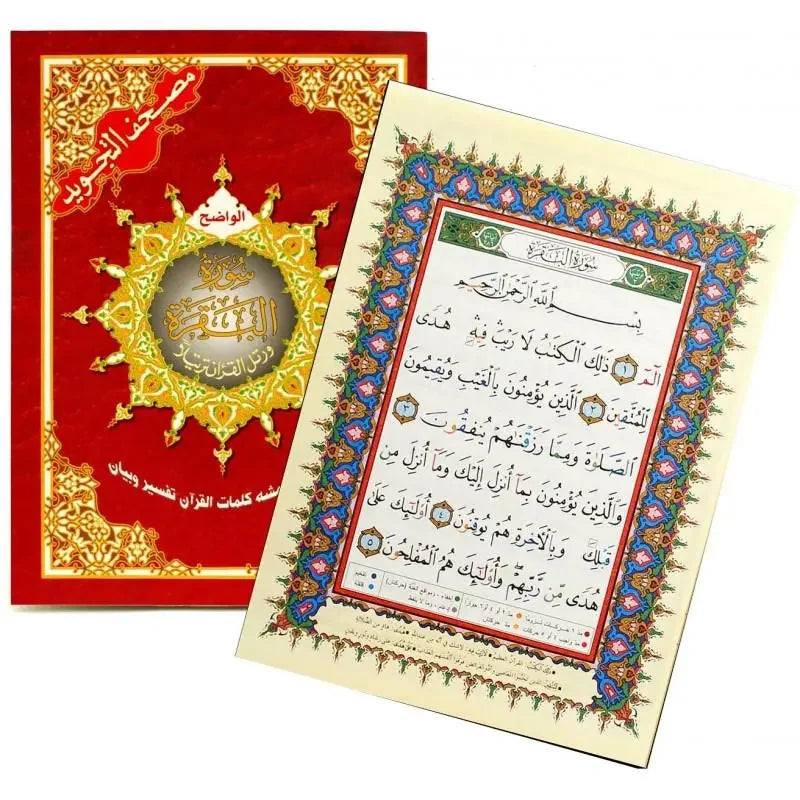 مصحف التجويد
الواضح
سورة
البقرة
ورتل القرآن ترتيلا
كلمات القرآن تفسير وبيان
سُورَةُ البَقَرَةِ
بِسْمِ ٱللَّهِ ٱلرَّحْمَٰنِ ٱلرَّحِيمِ
الٓمٓ ١ ذَٰلِكَ ٱلْكِتَٰبُ لَا رَيْبَ فِيهِ هُدًى
لِّلْمُتَّقِينَ ٢ ٱلَّذِينَ يُؤْمِنُونَ بِٱلْغَيْبِ وَيُقِيمُونَ
ٱلصَّلَوٰةَ وَمِمَّا رَزَقْنَٰهُمْ يُنفِقُونَ ٣
وَٱلَّذِينَ يُؤْمِنُونَ بِمَآ أُنزِلَ إِلَيْكَ وَمَآ أُنزِلَ مِن
قَبْلِكَ وَبِٱلْءَاخِرَةِ هُمْ يُوقِنُونَ ٤ أُو۟لَٰٓئِكَ عَلَىٰ
هُدًى مِّن رَّبِّهِمْ وَأُو۟لَٰٓئِكَ هُمُ ٱلْمُفْلِحُونَ ٥